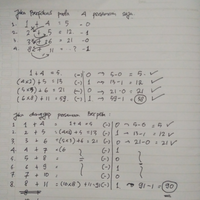 Jika berpatokan pada 4 persamaan saja
1. 1 + 4 = 5 - 0
2. 2 + 5 = 12 - 1
3. 3 + 6 = 21 - 0
4. 8 11 = ? - 1
1 + 4 = 5 (-) 0 → 5-0 = 5 ✓
(4×2) + 5 = 13 (-) 1 → 13-1 = 12 ✓
(5×3) + 6 = 21 (-) 0 → 21-0 = 21 ✓
(6×8) + 11 = 59 (-) 1 → 59-1 = 58 ✓
Jika dianggap persamaan berpola :
1. 1 + 4 = 1+4 = 5 (-) 0 → 5-0 = 5 ✓
2. 2 + 5 = (4×2)+5 = 13 (-) 1 → 13-1 = 12 ✓
3. 3 + 6 = (5×3)+6 = 21 (-) 0 → 21-0 = 21 ✓
4. 4 + 7 = (6 1
5. 5 + 8 = 0
6. 6 + 9 = 1
7. 7 + 10 = 0
8. 8 + 11 = (10×8) + 11 = 91 (-) 1 → 91-1 = 90